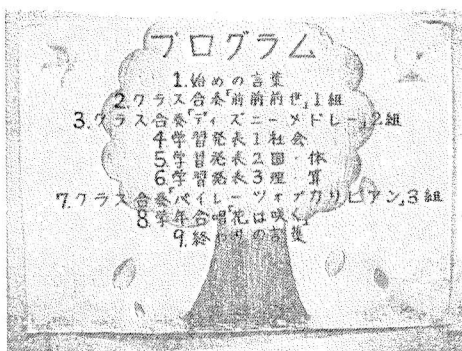 プログラム
1.始めの言葉
2.クラス合奏「前前前世」1組
3.クラス合奏「ディズニーメドレー」2組
4.学習発表1社会
5.学習発表2国・体
6.学習発表3理・算
7.クラス合奏「パイレーツオブカリビアン」3組
8.学年合唱「花は咲く」
9.終わりの言葉